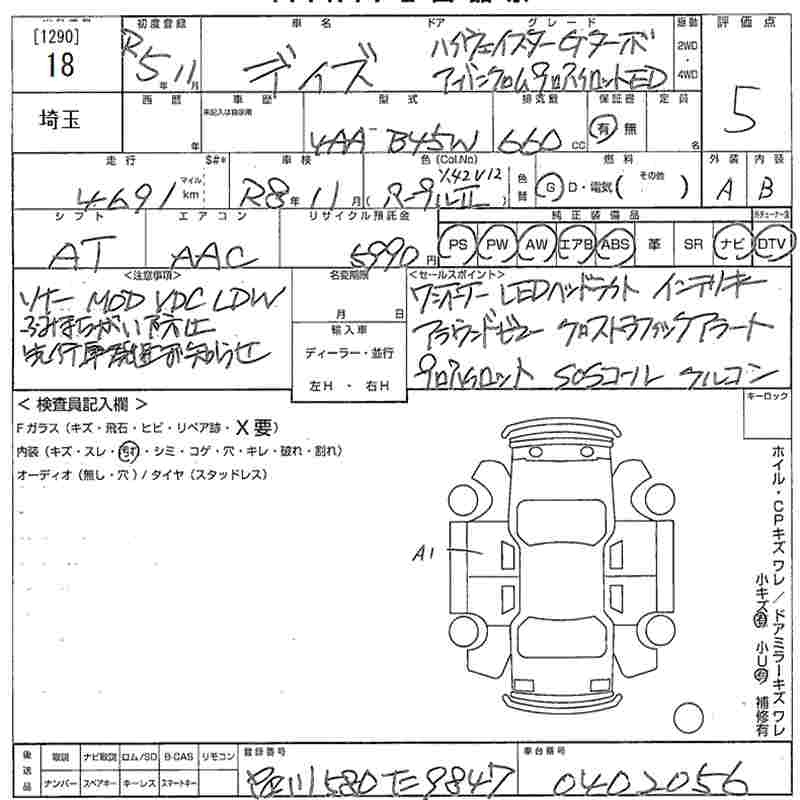 [1290]
18
埼玉
初度登録
R5年11月
車名
デイズ
ドア
グレード
ハイウェイスターGターボ
アーバンクロム プロパイロットED
駆動
2WD
・
4WD
評価点
5
西暦
年
車歴
未記入は自家用
型式
4AA-B45W
排気量
660 CC
保証書
有 無
定員
名
走行
S#*
4691
マイル
km
車検
R8年11月
色(Col.No)
色替
燃料
G D・電気( その他 )
外装
A
内装
B
シフト
AT
エアコン
AAC
リサイクル預託金
5990円
純正装備品
PS PW AW エアB ABS 革 SR ナビ DTV
<注意事項>
ソナー MOD VDC LDW
ふみまちがい防止
先行車発進お知らせ
名変期限
月 日
輸入車
ディーラー・並行
左H ・ 右H
<セールスポイント>
ワンオーナー LEDヘッドライト インテリキー
アラウンドビュー クロストラフィックアラート
プロパイロット SOSコール クルコン
< 検査員記入欄 >
Fガラス(キズ・飛石・ヒビ・リペア跡・X要)
内装(キズ・スレ・汚れ・シミ・コゲ・穴・キレ・破れ・割れ)
オーディオ(無し・穴)/タイヤ(スタッドレス)
キーロック
A1
ホイル・CPキズ ワレ / ドアミラーキズ ワレ
小キズ有 小U有 補修有
後送品
取説 ナビ取説 ロム/SD B-CAS リモコン
ナンバー スペアキー キーレス スマートキー
登録番号
580 た 9847
車台番号
0402056